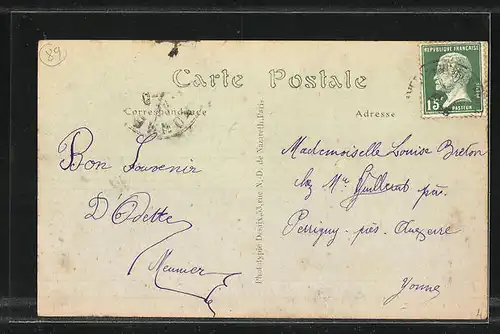 89
Carte Postale
Correspondance
Adresse
REPUBLIQUE FRANÇAISE
15c
PASTEUR
Bon Souvenir
D'Odette
Meunier
Phototypie Desaix, 33, rue N.-D. de Nazareth, Paris.
Mademoiselle Louise Breton
chez Mr Guillerat
Perrigny-près-Auxerre
Yonne